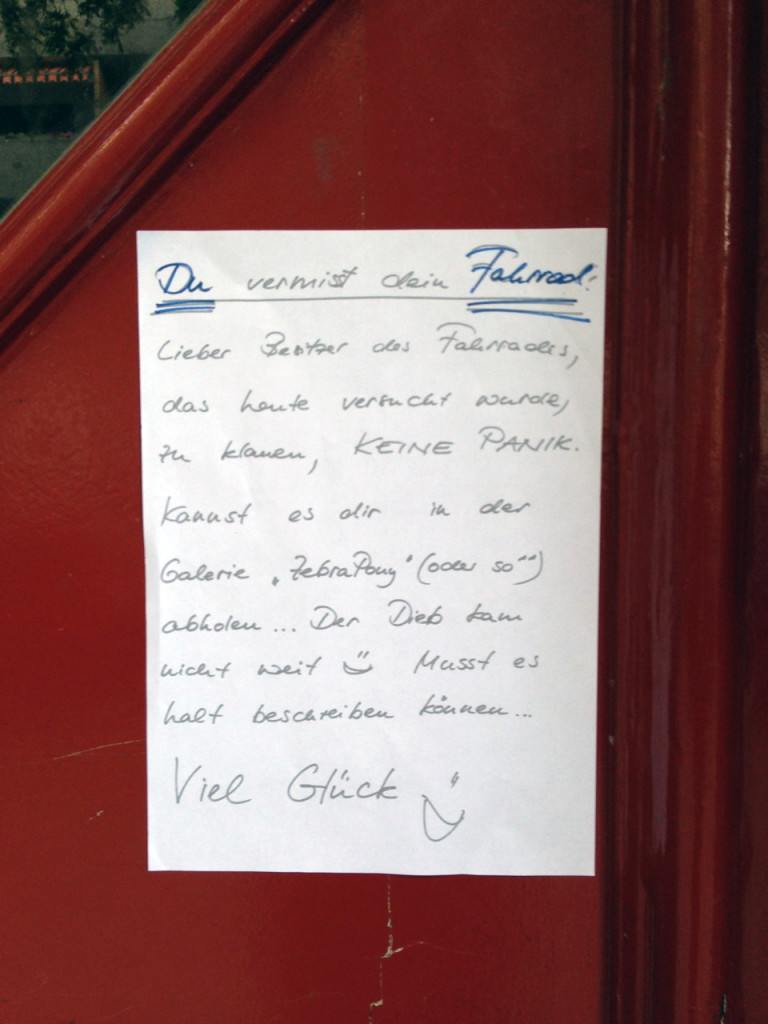 Du vermisst dein Fahrrad!
Lieber Besitzer des Fahrrades,
das heute versucht wurde,
zu klauen, KEINE PANIK.
Kannst es dir in der
Galerie „ZebraPony" (oder so^^)
abholen... Der Dieb kam
nicht weit Musst es
halt beschreiben können...
Viel Glück